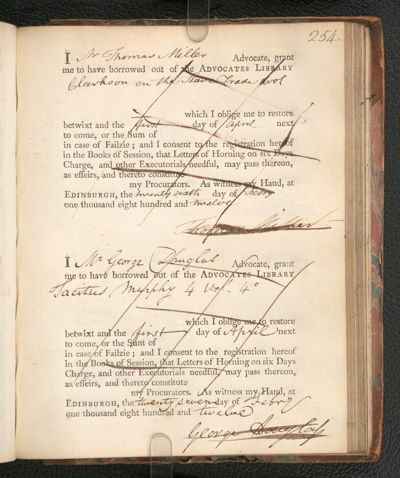 254.
I Mr Thomas Miller Advocate, grant
me to have borrowed out of the ADVOCATES LIBRARY
Clarkson on the Slave Trade 2vol
which I oblige me to restore
betwixt and the first day of April next
to come, or the Sum of
in case of Failzie; and I consent to the registration hereof
in the Books of Session, that Letters of Horning on six Days
Charge, and other Executorials needful, may pass thereon,
as effeirs, and thereto constitute
my Procurators. As witness my Hand, at
EDINBURGH, the twenty sixth day of Febry
one thousand eight hundred and twelve
Thomas Miller
I Mr George Douglas Advocate, grant
me to have borrowed out of the ADVOCATES LIBRARY
Tacitus Murphy 4 Vol. 4o
which I oblige me to restore
betwixt and the first day of April next
to come, or the Sum of
in case of Failzie; and I consent to the registration hereof
in the Books of Session, that Letters of Horning on six Days
Charge, and other Executorials needful, may pass thereon,
as effeirs, and thereto constitute
my Procurators. As witness my Hand, at
EDINBURGH, the twenty seven day of Febry
one thousand eight hundred and twelve
George Douglas